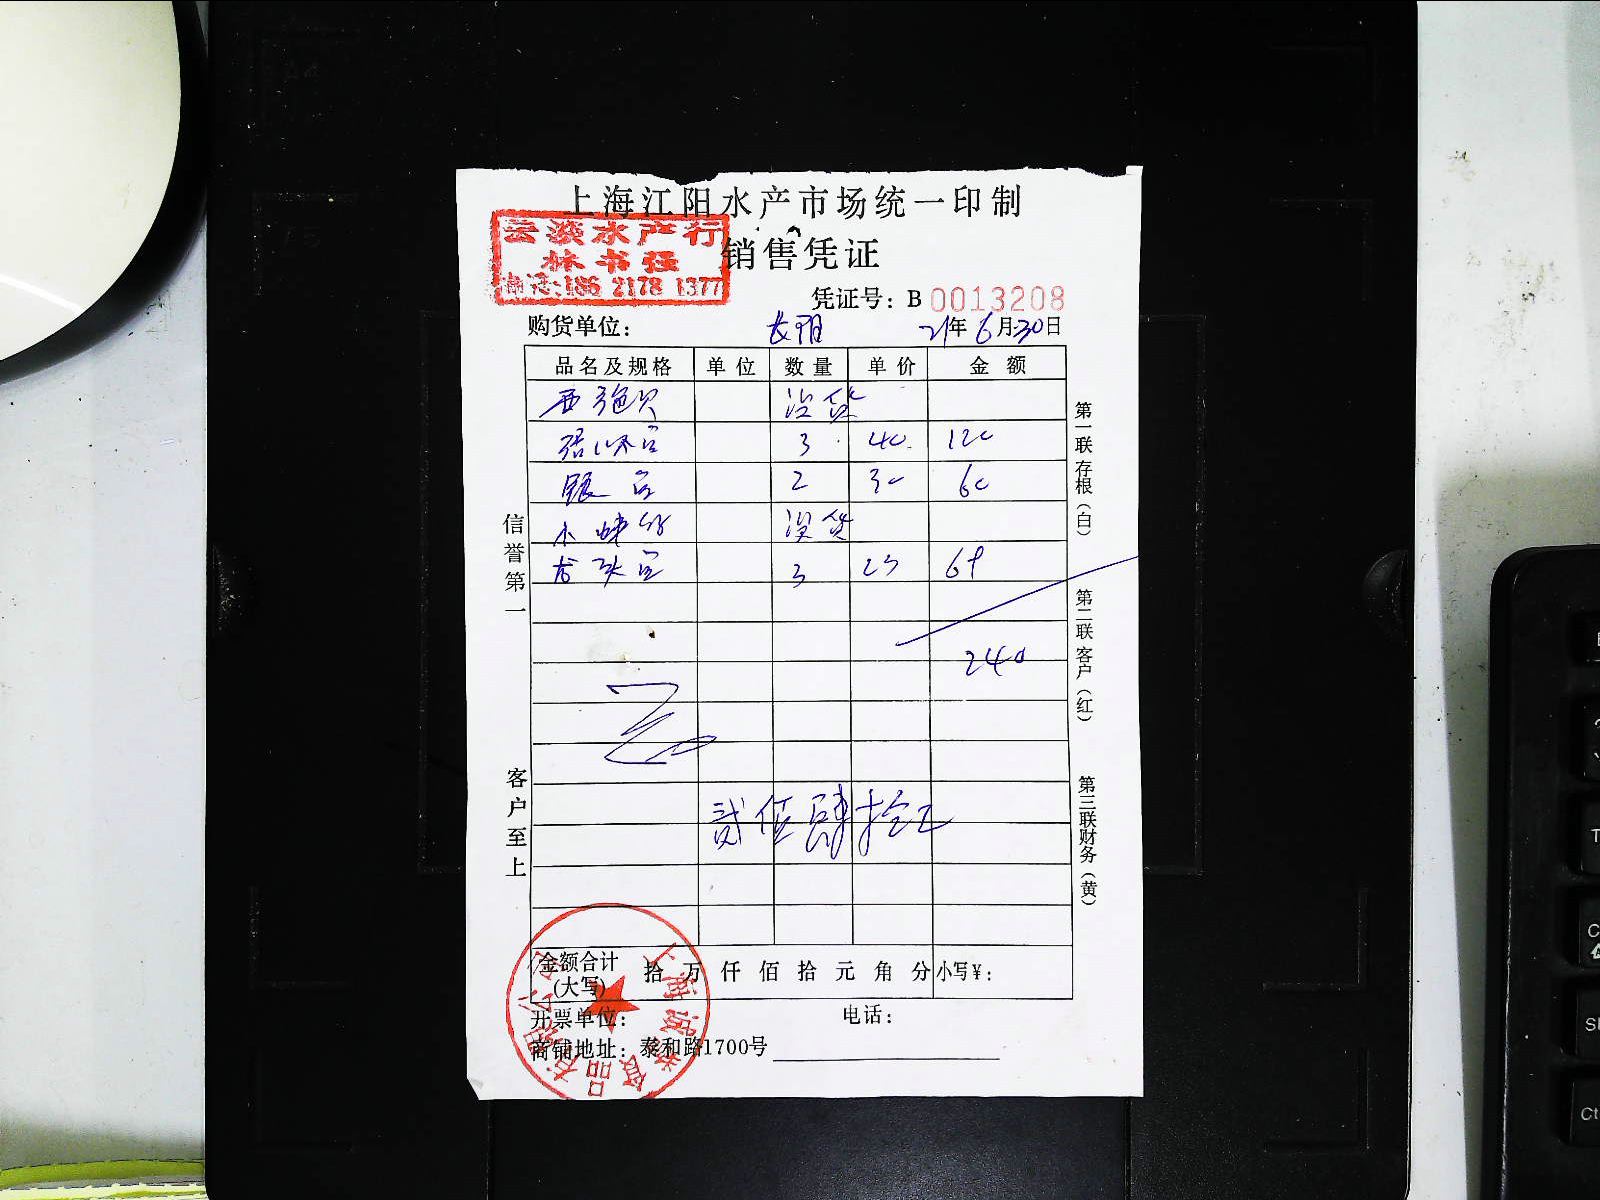 上海江阳水产市场统一印制
云淡水产行
林书强
电话:186 2178 1377
销售凭证
凭证号：B 0013208
购货单位： 21年6月30日
品名及规格 单位 数量 单价 金额
西施贝 没货
3 40 120
银 2 30 60
小 没货
龙头 3 23
240
贰佰肆拾元
信誉第一
客户至上
第一联存根（白）
第二联客户（红）
第三联财务（黄）
金额合计(大写) 拾 万 仟 佰 拾 元 角 分 小写¥：
开票单位： 电话：
商铺地址：泰和路1700号
上海诚 食品有限公司